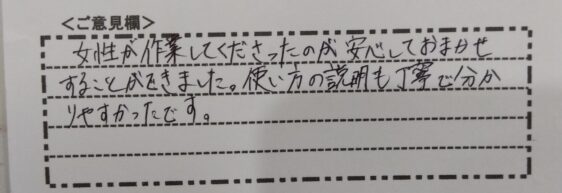 ＜ご意見欄＞
女性が作業してくださったのが安心しておまかせ
することができました。使い方の説明も丁寧で分か
りやすかったです。